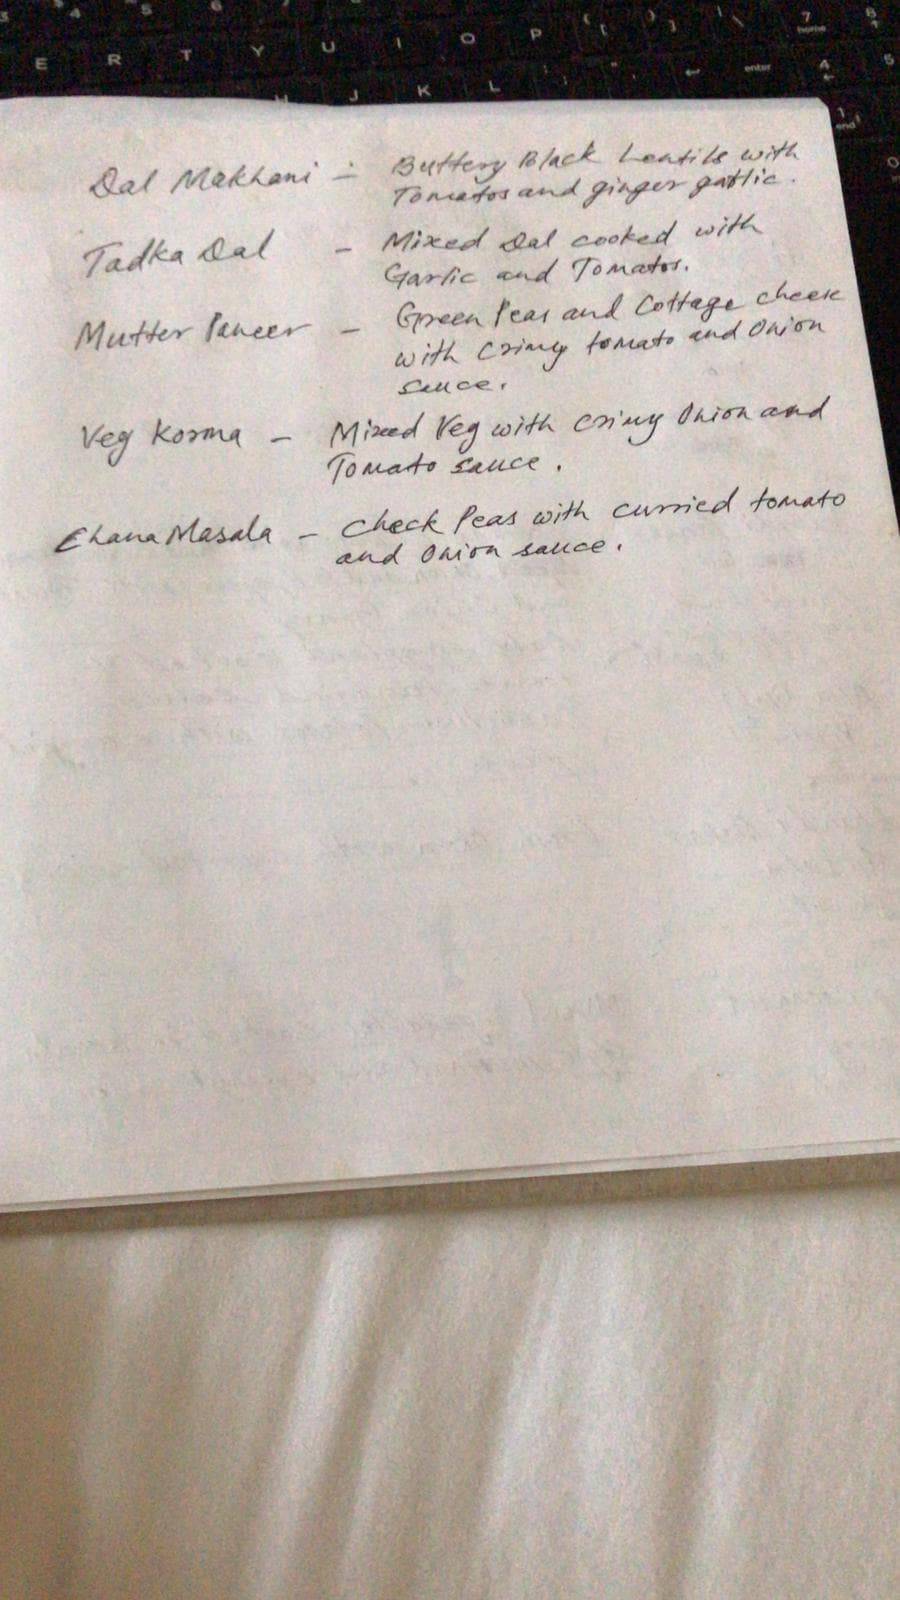 E R T Y U I O P
J K L enter
7 home
4
Dal Makhani :- Buttery Black Lentils with
Tomatos and ginger garlic.
Tadka Dal - Mixed Dal cooked with
Garlic and Tomatos.
Mutter Paneer - Green Peas and Cottage cheese
with Crimy tomato and Onion
sauce.
Veg Korma - Mixed Veg with Crimy Onion and
Tomato sauce.
Chana Masala - Check Peas with curried tomato
and Onion sauce.